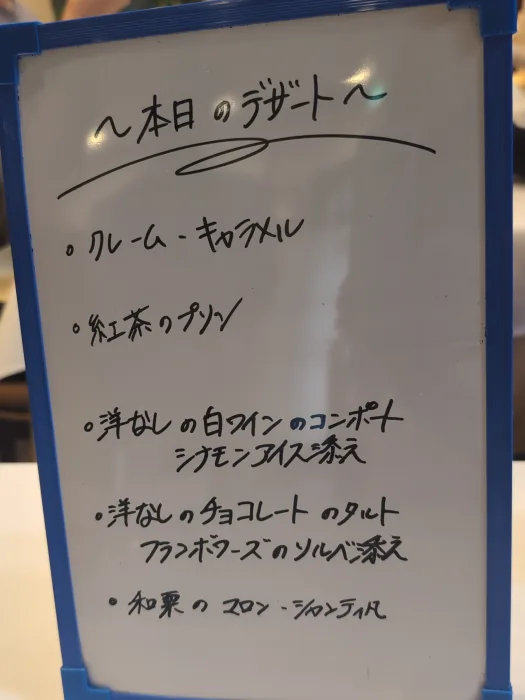 ～本日のデザート～
・クレーム・キャラメル
・紅茶のプリン
・洋なしの白ワインのコンポート
シナモンアイス添え
・洋なしのチョコレートのタルト
フランボワーズのソルベ添え
・和栗のマロン・シャンティ